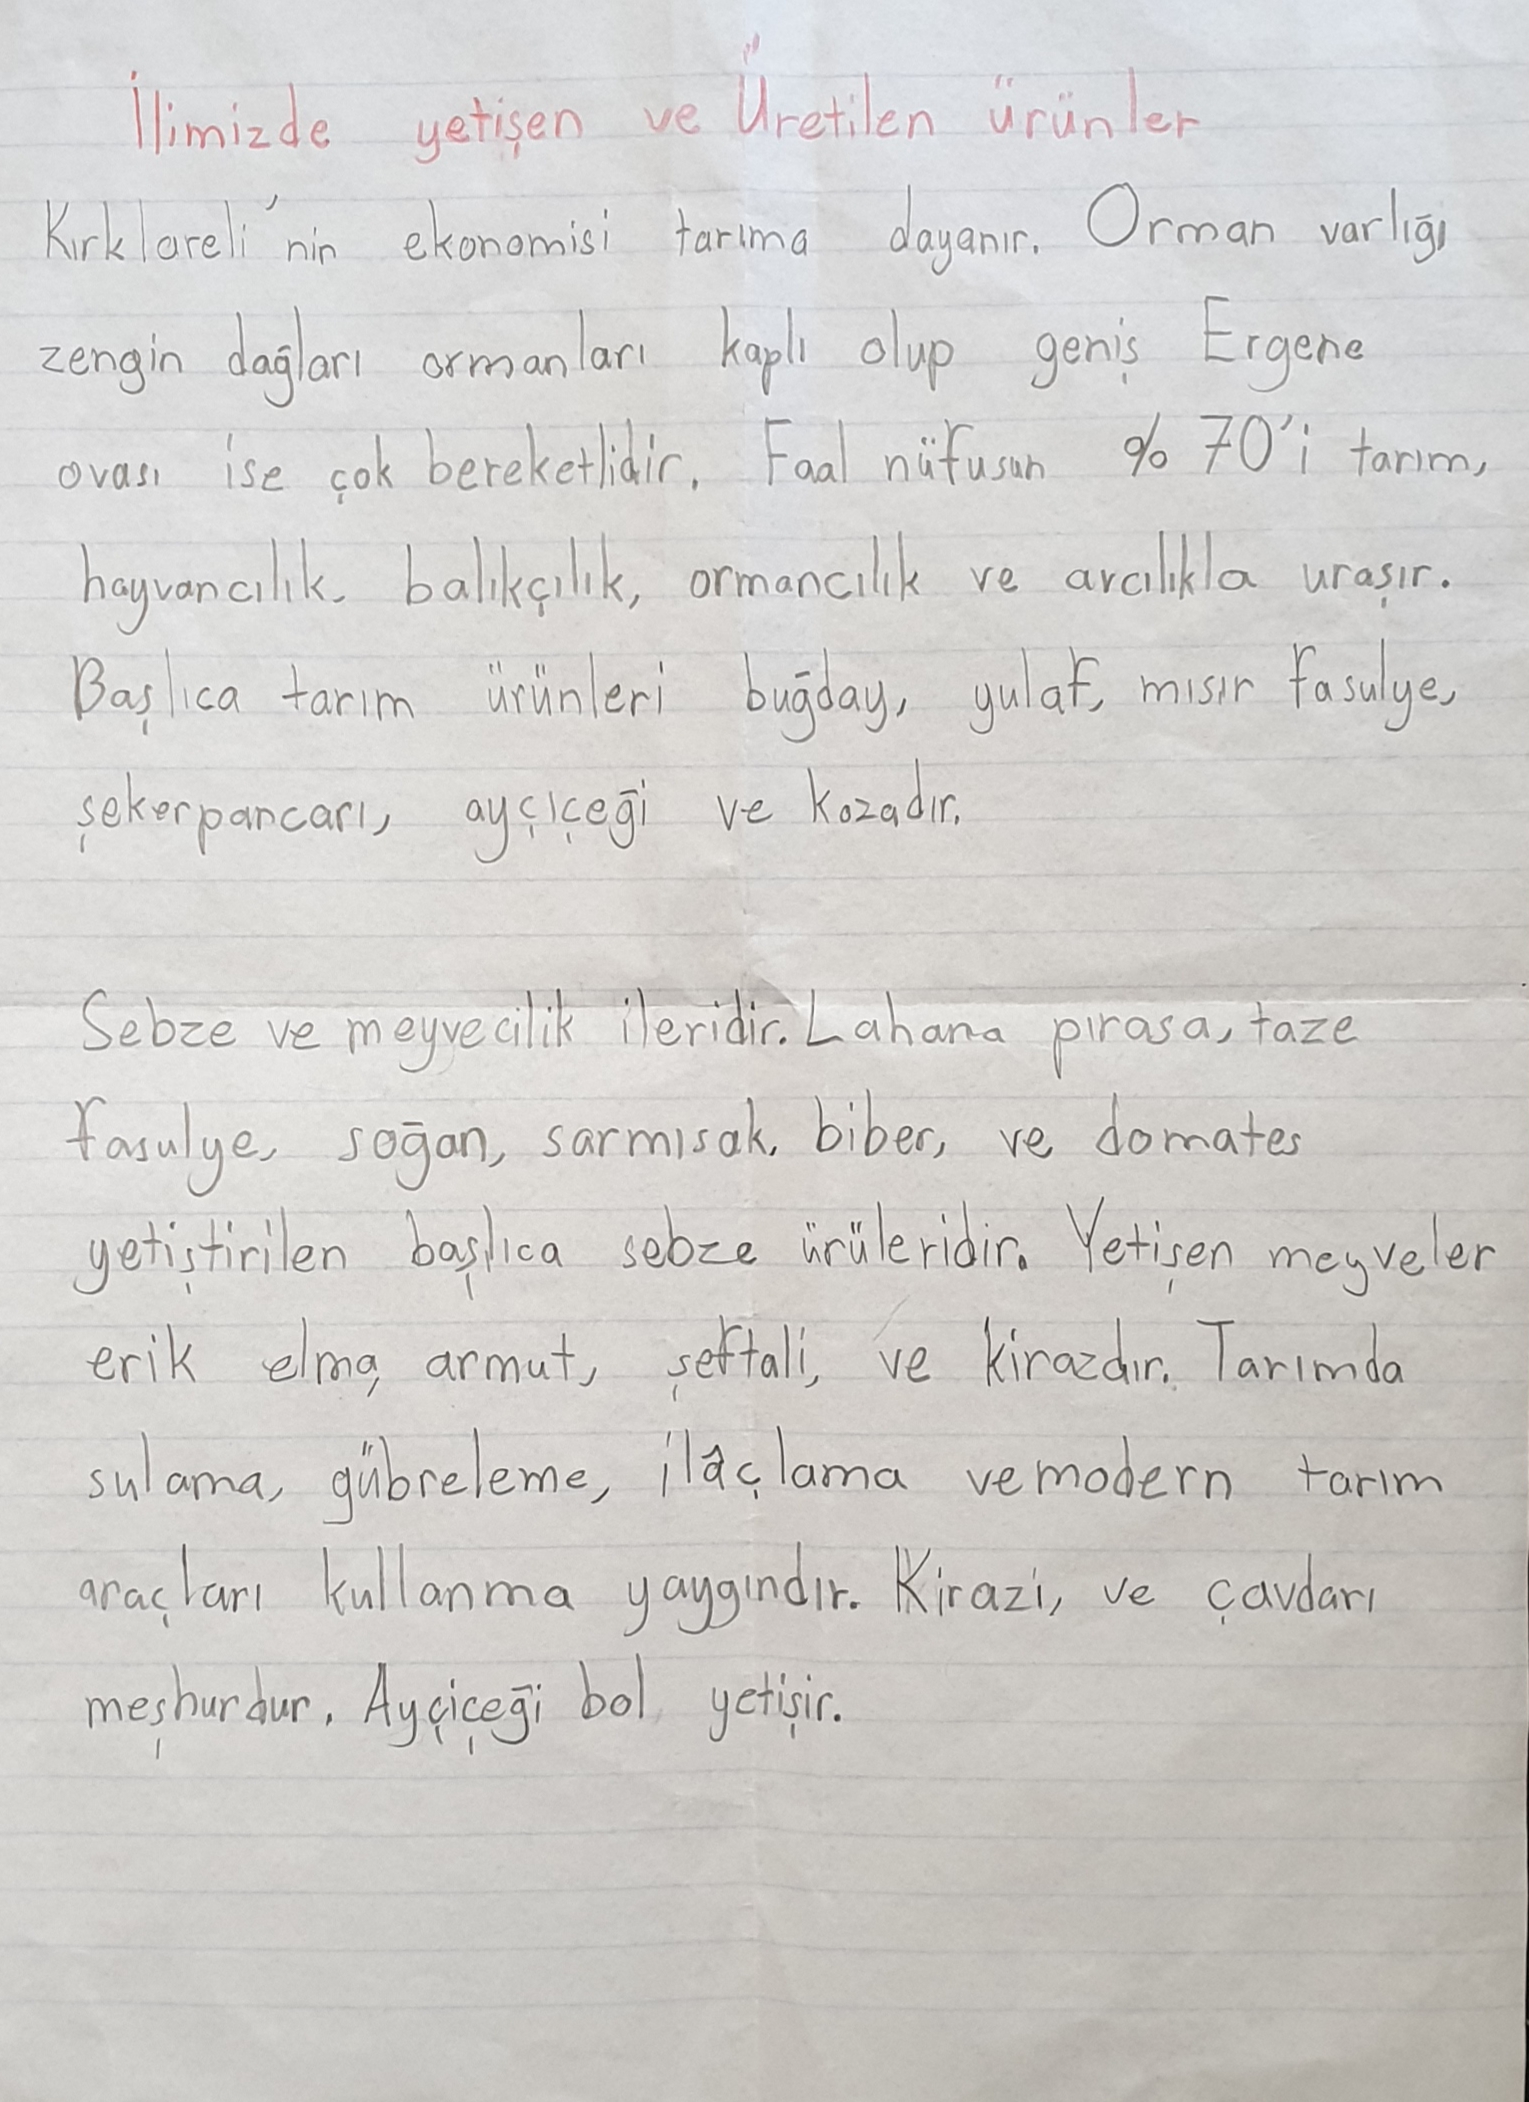 İlimizde yetişen ve Üretilen ürünler
Kırklareli'nin ekonomisi tarıma dayanır. Orman varlığı
zengin dağları ormanları kaplı olup geniş Ergene
ovası ise çok bereketlidir. Faal nüfusun % 70'i tarım,
hayvancılık, balıkçılık, ormancılık ve avcılıkla uraşır.
Başlıca tarım ürünleri buğday, yulaf, mısır fasulye,
şekerpancarı, ayçıçeği ve kozadır.
Sebze ve meyvecilik ileridir. Lahana pırasa, taze
fasulye, soğan, sarmısak, biber, ve domates
yetiştirilen başlıca sebze ürüleridir. Yetişen meyveler
erik elma, armut, şeftali, ve kirazdır. Tarımda
sulama, gübreleme, ilâçlama vemodern tarım
araçları kullanma yaygındır. Kirazi, ve çavdarı
meşhurdur. Ayçiçeği bol yetişir.